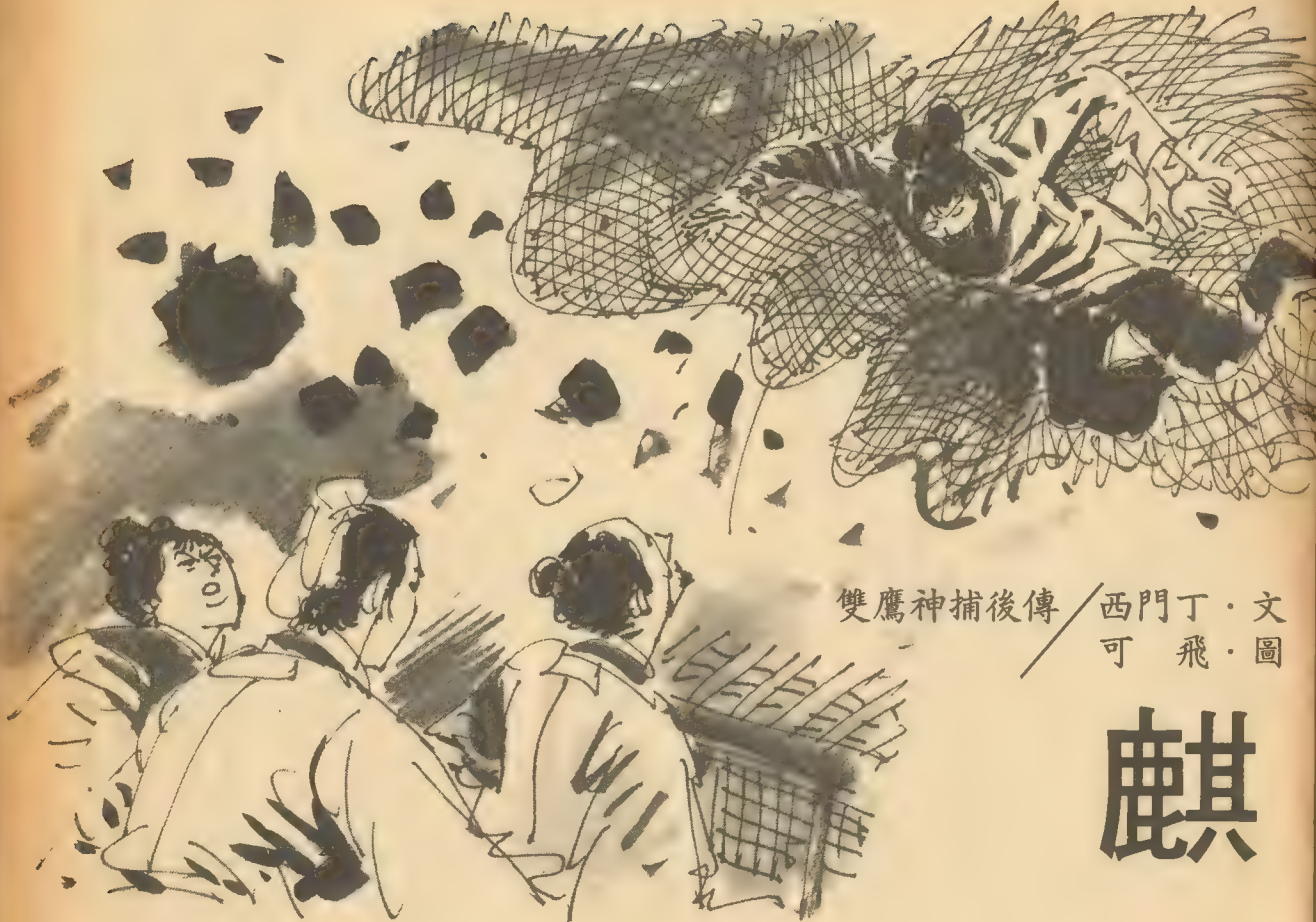 雙鷹神捕後傳／西門丁・文
可飛・圖
麒